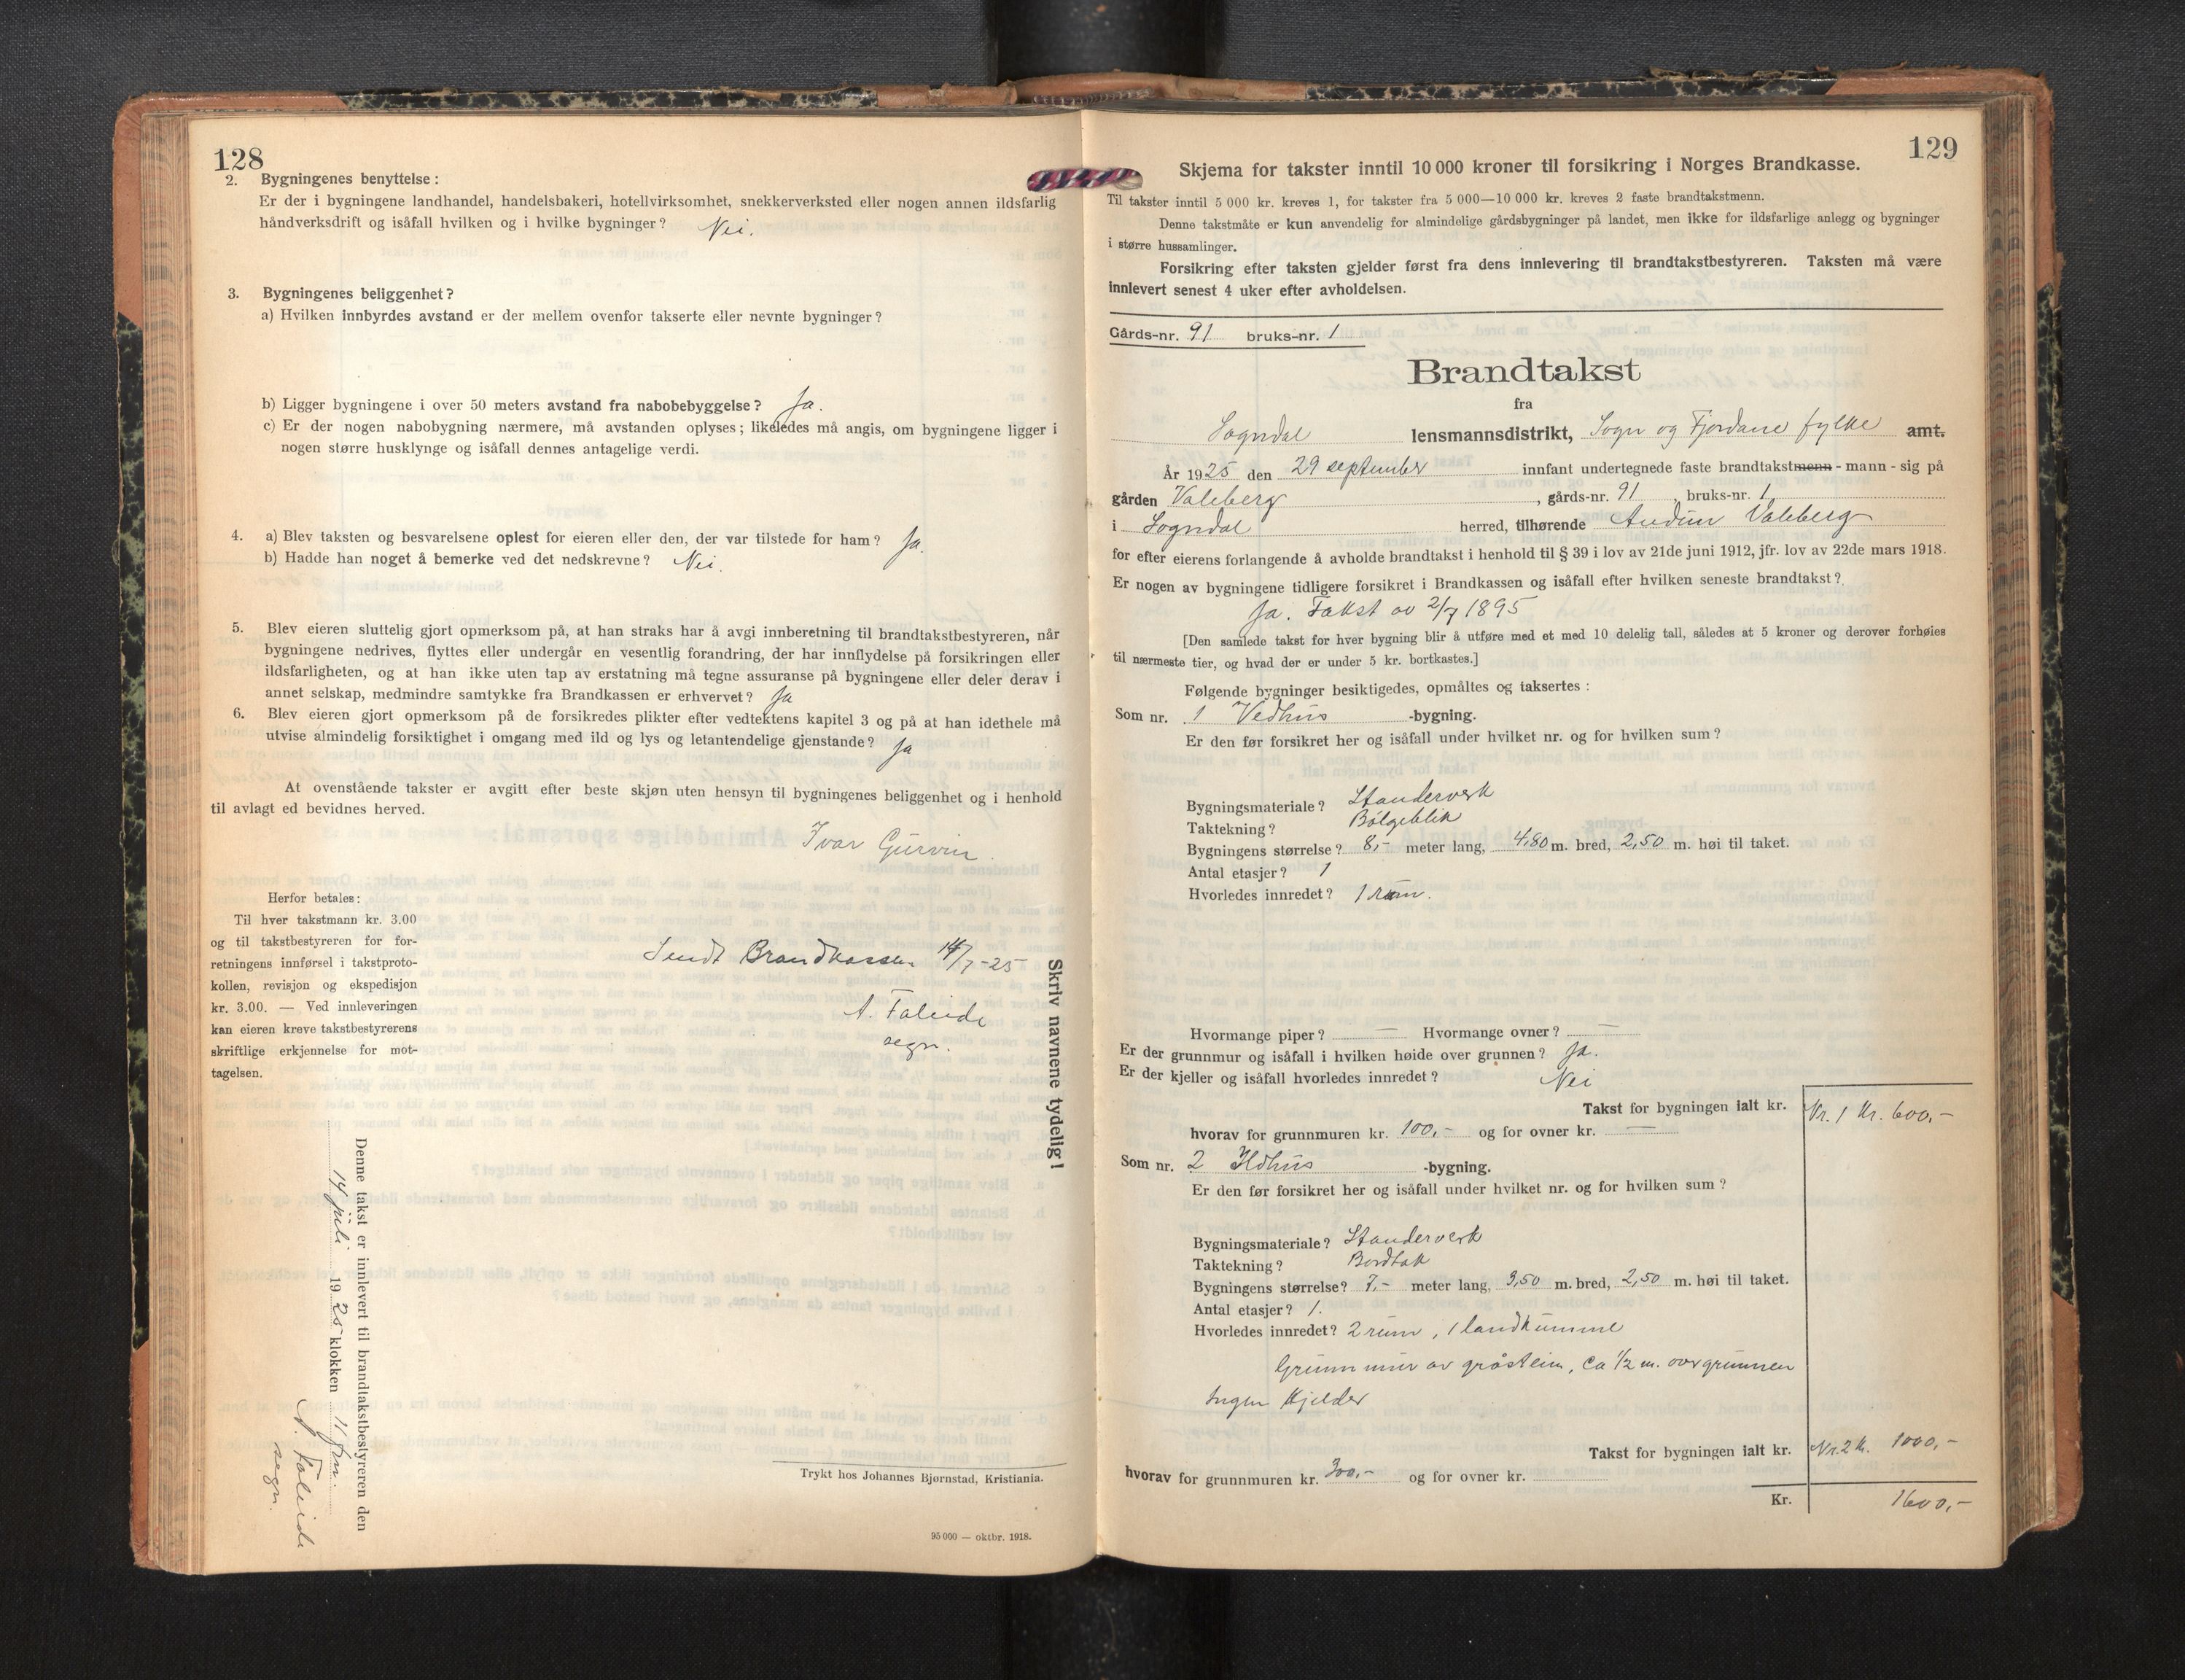 128
2. Bygningenes benyttelse :
Er der i bygningene landhandel, handelsbakeri, hotellvirksomhet, snekkerverksted eller nogen annen ildsfarlig
håndverksdrift og isåfall hvilken og i hvilke bygninger? Nei.
3. Bygningenes beliggenhet?
a) Hvilken innbyrdes avstand er der mellem ovenfor takserte eller nevnte bygninger?
b) Ligger bygningene i over 50 meters avstand fra nabobebyggelse? Ja.
c) Er der nogen nabobygning nærmere, må avstanden oplyses; likeledes må angis, om bygningene ligger i
nogen større husklynge og isåfall dennes antagelige verdi.
4. a) Blev taksten og besvarelsene oplest for eieren eller den, der var tilstede for ham? Ja.
b) Hadde han noget å bemerke ved det nedskrevne? Nei.
5. Blev eieren sluttelig gjort opmerksom på, at han straks har å avgi innberetning til brandtakstbestyreren, når
bygningene nedrives, flyttes eller undergår en vesentlig forandring, der har innflydelse på forsikringen eller
ildsfarligheten, og at han ikke uten tap av erstatning må tegne assuranse på bygningene eller deler derav i
annet selskap, medmindre samtykke fra Brandkassen er erhvervet? Ja
6. Blev eieren gjort opmerksom på de forsikredes plikter efter vedtektens kapitel 3 og på at han idethele må
utvise almindelig forsiktighet i omgang med ild og lys og letantendelige gjenstande? Ja
At ovenstående takster er avgitt efter beste skjøn uten hensyn til bygningenes beliggenhet og i henhold
til avlagt ed bevidnes herved.
Ivar Gurvin
Herfor betales:
Til hver takstmann kr. 3.00
og til takstbestyreren for for-
retningens innførsel i takstproto-
kollen, revisjon og ekspedisjon
kr. 3.00. — Ved innleveringen
kan eieren kreve takstbestyrerens
skriftlige erkjennelse for mot-
tagelsen.
Sendt Brandkassen 14/7-25
A. Faleide
segn.
Skriv navnene tydelig!
Denne takst er innlevert til brandtakstbestyreren den
14 juli 1925 klokken 11 fm.
A. Faleide
segn.
Trykt hos Johannes Bjørnstad, Kristiania.
95 000 — oktbr. 1918.
129
Skjema for takster inntil 10 000 kroner til forsikring i Norges Brandkasse.
Til takster inntil 5 000 kr. kreves 1, for takster fra 5 000—10 000 kr. kreves 2 faste brandtakstmenn.
Denne takstmåte er kun anvendelig for almindelige gårdsbygninger på landet, men ikke for ildsfarlige anlegg og bygninger
i større hussamlinger.
Forsikring efter taksten gjelder først fra dens innlevering til brandtakstbestyreren. Taksten må være
innlevert senest 4 uker efter avholdelsen.
Gårds-nr. 91 bruks-nr. 1
Brandtakst
fra
Sogndal lensmannsdistrikt, Sogn og Fjordane fylke amt.
År 1925 den 29 september innfant undertegnede faste brandtakstmenn - mann - sig på
gården Valeberg, gårds-nr. 91, bruks-nr. 1
i Sogndal herred, tilhørende Audun Valeberg
for efter eierens forlangende å avholde brandtakst i henhold til § 39 i lov av 21de juni 1912, jfr. lov av 22de mars 1918.
Er nogen av bygningene tidligere forsikret i Brandkassen og isåfall efter hvilken seneste brandtakst?
Ja. Takst av 2/7 1895
[Den samlede takst for hver bygning blir å utføre med et med 10 delelig tall, således at 5 kroner og derover forhøies
til nærmeste tier, og hvad der er under 5 kr. bortkastes.]
Følgende bygninger besiktigedes, opmåltes og taksertes :
Som nr. 1 Vedhus -bygning.
Er den før forsikret her og isåfall under hvilket nr. og for hvilken sum?
Bygningsmateriale? Standerverk
Taktekning? Bølgeblik
Bygningens størrelse? 8,- meter lang, 4,80 m. bred, 2,50 m. høi til taket.
Antal etasjer? 1
Hvorledes innredet? 1 rum.
Hvormange piper? — Hvormange ovner? —
Er der grunnmur og isåfall i hvilken høide over grunnen? Ja.
Er der kjeller og isåfall hvorledes innredet? Nei
Takst for bygningen ialt kr. Nr. 1 Kr. 600,-
hvorav for grunnmuren kr. 100,- og for ovner kr. —
Som nr. 2 Ildhus -bygning.
Er den før forsikret her og isåfall under hvilket nr. og for hvilken sum?
Bygningsmateriale? Standerverk
Taktekning? Bordtak
Bygningens størrelse? 7,- meter lang, 3,50 m. bred, 2,50 m. høi til taket.
Antal etasjer? 1.
Hvorledes innredet? 2 rum, 1 landkumme
Grunnmur av gråstein, ca 1/2 m. over grunnen
Ingen kjelder
Takst for bygningen ialt kr. Nr. 2 Kr. 1000,-
hvorav for grunnmuren kr. 300,- og for ovner kr.
Kr. 1600,-